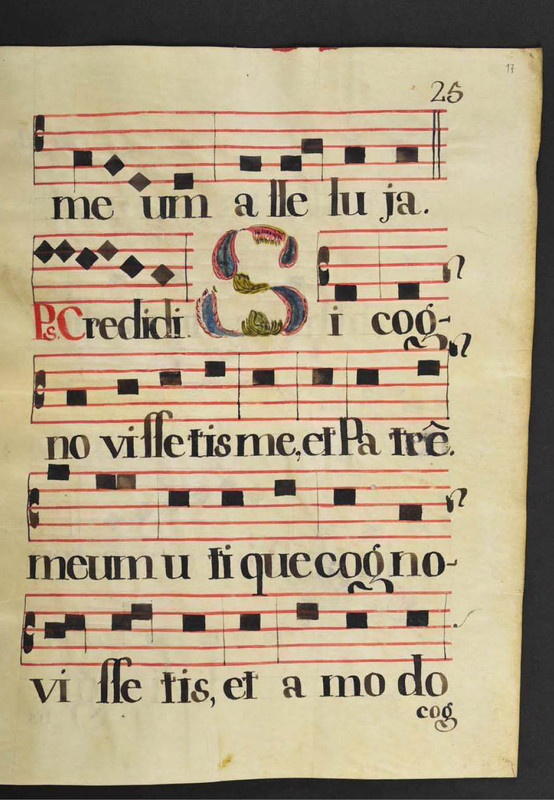 17
25
me um a lle lu ja.
Ps. Credidi. S i cog-
no vi sse tis me, et Pa trê.
meum u ti que cog no-
vi sse tis, et a mo do
cog